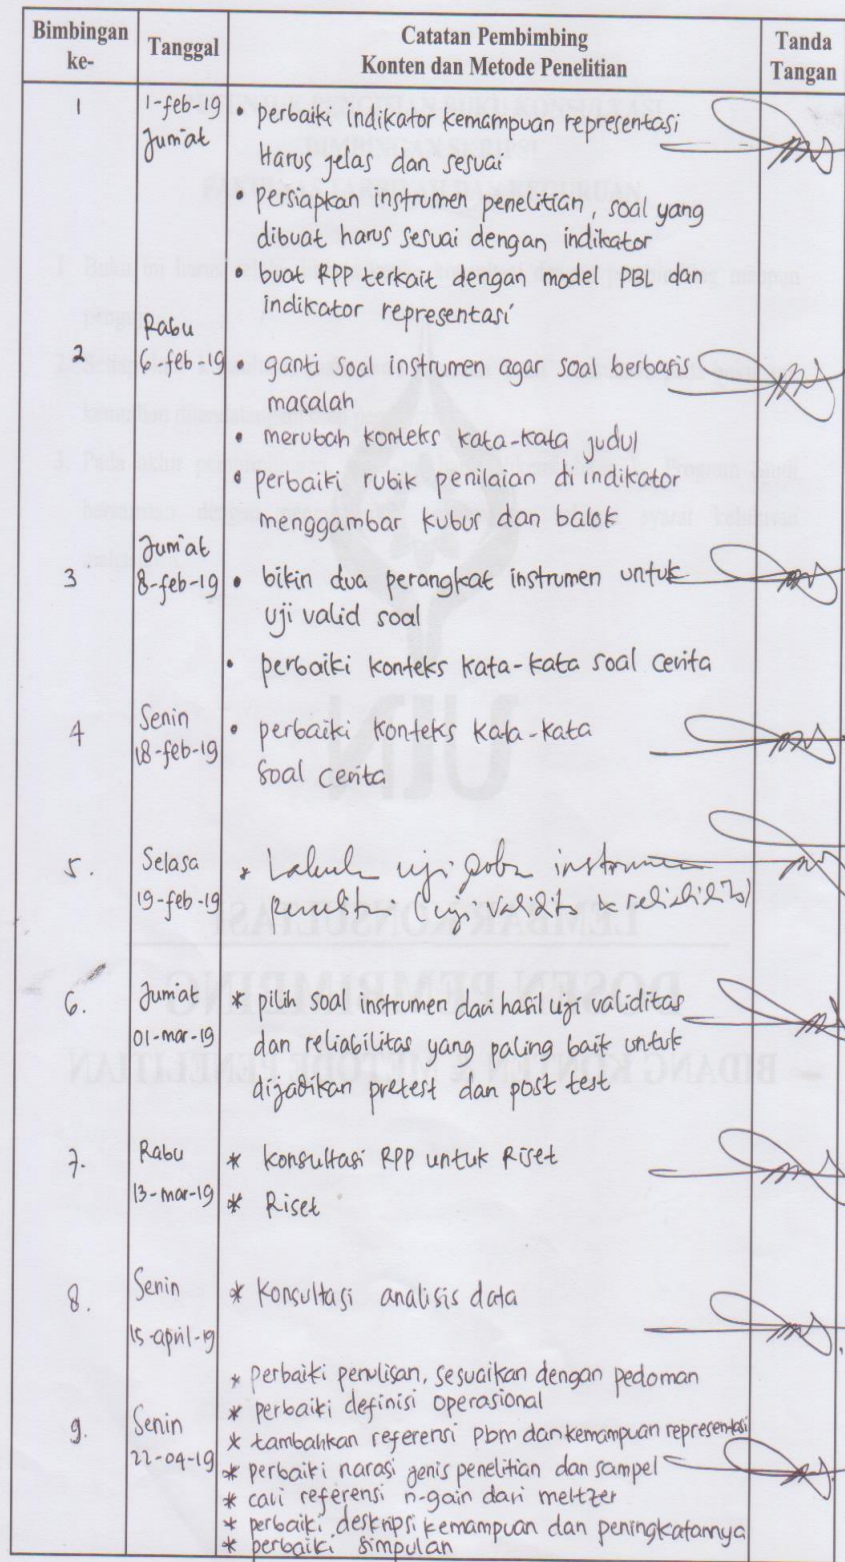 Bimbingan ke-
Tanggal
Catatan Pembimbing
Konten dan Metode Penelitian
Tanda Tangan
1
1-feb-19
Jum'at
• perbaiki indikator kemampuan representasi
Harus jelas dan sesuai
• persiapkan instrumen penelitian, soal yang
dibuat harus sesuai dengan indikator
• buat RPP terkait dengan model PBL dan
indikator representasi
2
Rabu
6-feb-19
• ganti soal instrumen agar soal berbasis
masalah
• merubah konteks kata-kata judul
• perbaiki rubik penilaian di indikator
menggambar kubus dan balok
3
Jum'at
8-feb-19
• bikin dua perangkat instrumen untuk
uji valid soal
• perbaiki konteks kata-kata soal cerita
4
Senin
18-feb-19
• perbaiki konteks kata-kata
soal cerita
5.
Selasa
19-feb-19
* uji instrumen
(uji validitas & reliabilitas)
6.
Jum'at
01-mar-19
* pilih soal instrumen dari hasil uji validitas
dan reliabilitas yang paling baik untuk
dijadikan pretest dan post test
7.
Rabu
13-mar-19
* konsultasi RPP untuk Riset
* Riset
8.
Senin
15-april-19
* Konsultasi analisis data
9.
Senin
22-04-19
* perbaiki penulisan, sesuaikan dengan pedoman
* perbaiki definisi operasional
* tambahkan referensi pbm dan kemampuan representasi
* perbaiki narasi jenis penelitian dan sampel
* cari referensi n-gain dari meltzer
* perbaiki deskripsi kemampuan dan peningkatannya
* perbaiki simpulan